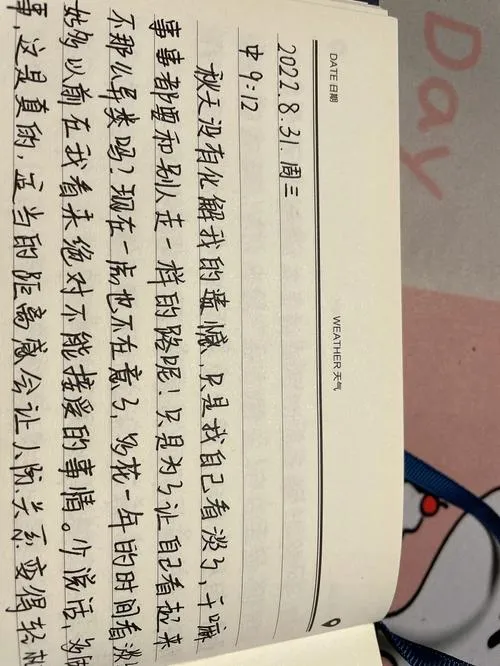 Day
DATE 日期 WEATHER 天气
2022.8.31.周三
中9:12
秋天没有化解我的遗憾,只是我自己看淡了,干嘛
事事都要和别人走一样的路呢!只是为了让自己看起来
不那么异类吗?现在一点也不在意了,多花一年的时间看淡
好多以前在我看来绝对不能接受的事情。少说话,多
事,这是真的,适当的距离感会让人际关系变得轻松